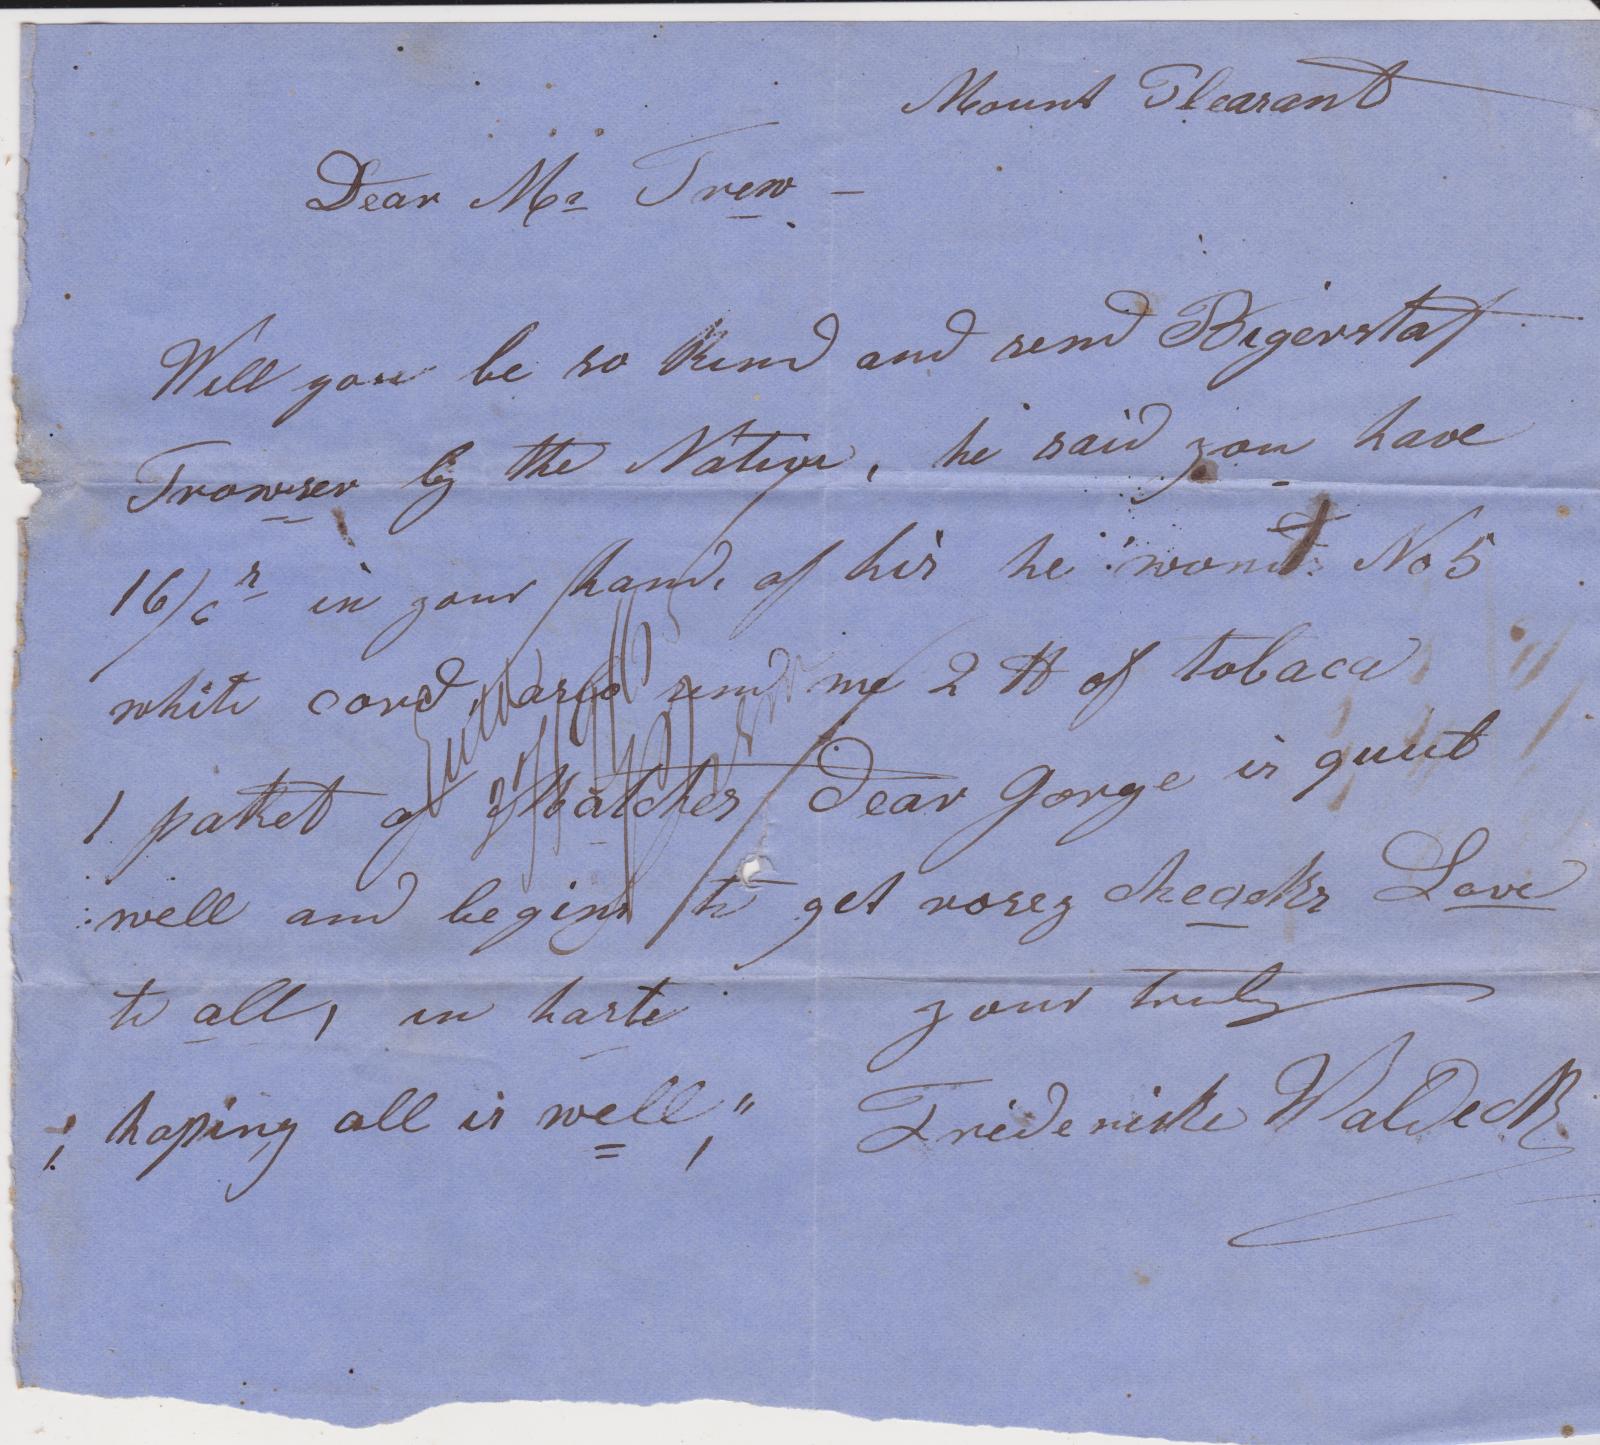 Mount Pleasant
Dear Mr Trew —
Will you be so kind and send Bigerstaf
Trowser by the Native, he said you have
16/6s in your hand, of his he wont No 5
white cord, also send me 2 lb of tobaca
1 paket of Matches Dear Gorge is quiet
well and begins to get rosey cheacks Love
to all, in haste your truly
hoping all is well," Friderike Waldeck